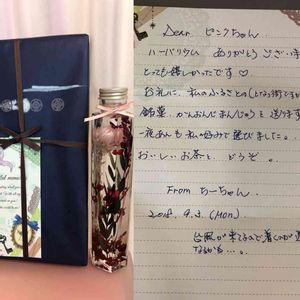 Dear ピンクちゃん
ハーバリウム ありがとうございま
とっても嬉しかったです♡
お礼に、私のふるさとの(となり街ですが)
銘菓、かんおんじまんじゅうと送ります
一夜あんも私の好みで選びました。
おいしいお茶と、どうぞ。
From ちーちゃん
2018. 9.3.(Mon)
台風が来てるので着くのが遅
なるかも…。